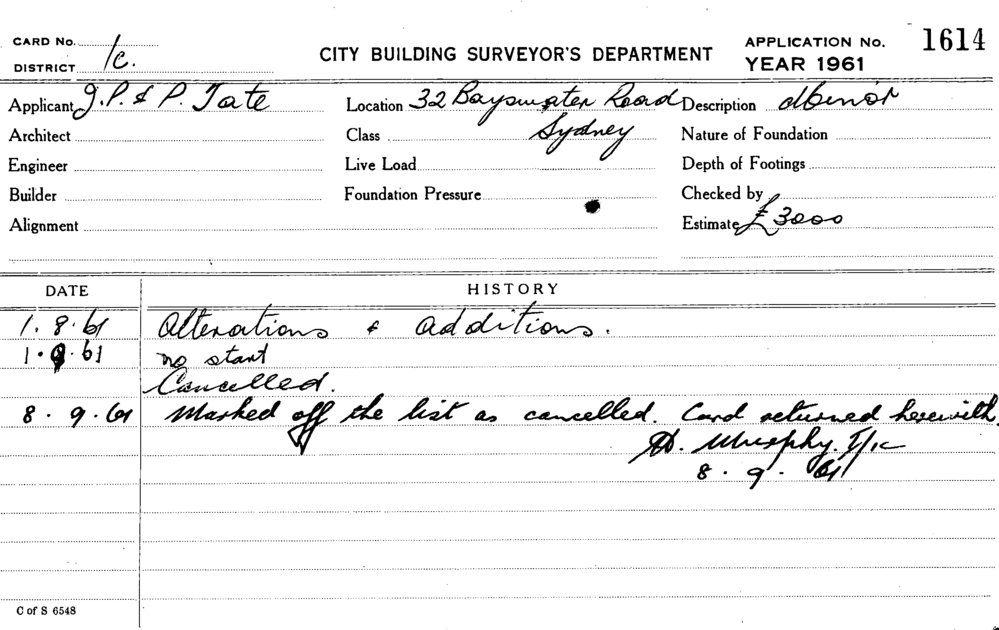 CARD No.
DISTRICT 1c.
CITY BUILDING SURVEYOR'S DEPARTMENT
APPLICATION No. 1614
YEAR 1961
Applicant J.P. & P. Tate
Location 32 Bayswater Road
Sydney
Description Minor
Architect
Class
Nature of Foundation
Engineer
Live Load
Depth of Footings
Builder
Foundation Pressure
Checked by
Alignment
Estimate £3000
DATE
HISTORY
1.8.61 Alterations & additions.
1.9.61 no start
Cancelled.
8.9.61 Marked off the list as cancelled. Card returned herewith.
Murphy.
8.9.61
C of S 6548